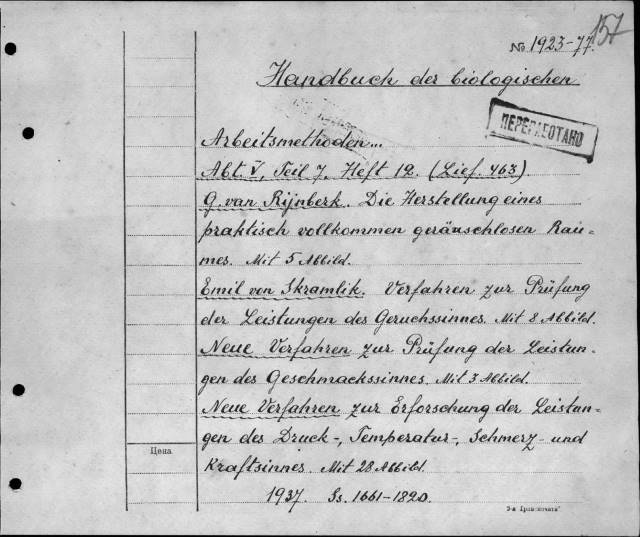 157
№ 1923-77.
Handbuch der biologischen
ПЕРЕРАБОТАНО
Arbeitsmethoden...
Abt. V, Teil 7, Heft 12. (Lief. 463)
G. van Rijnberk. Die Herstellung eines
praktisch vollkommen geräuschlosen Rau-
mes. Mit 5 Abbild.
Emil von Skramlik. Verfahren zur Prüfung
der Leistungen des Geruchssinnes. Mit 8 Abbild.
Neue Verfahren zur Prüfung der Leistun-
gen des Geschmackssinnes. Mit 3 Abbild.
Neue Verfahren zur Erforschung der Leistun-
gen des Druck-, Temperatur-, Schmerz- und
Kraftsinnes. Mit 28 Abbild.
Цена
1937. Ss. 1661-1820.